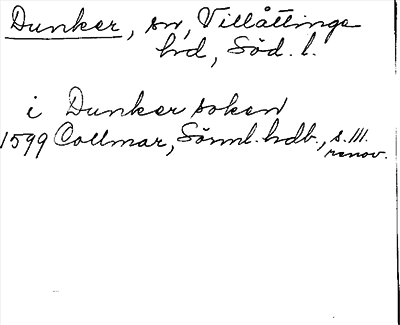 Dunker, sn, Villåttinge
hd, Söd. l.
i Dunker soken
1599 Collmar, Sörml. hdb., s. III.
renov.